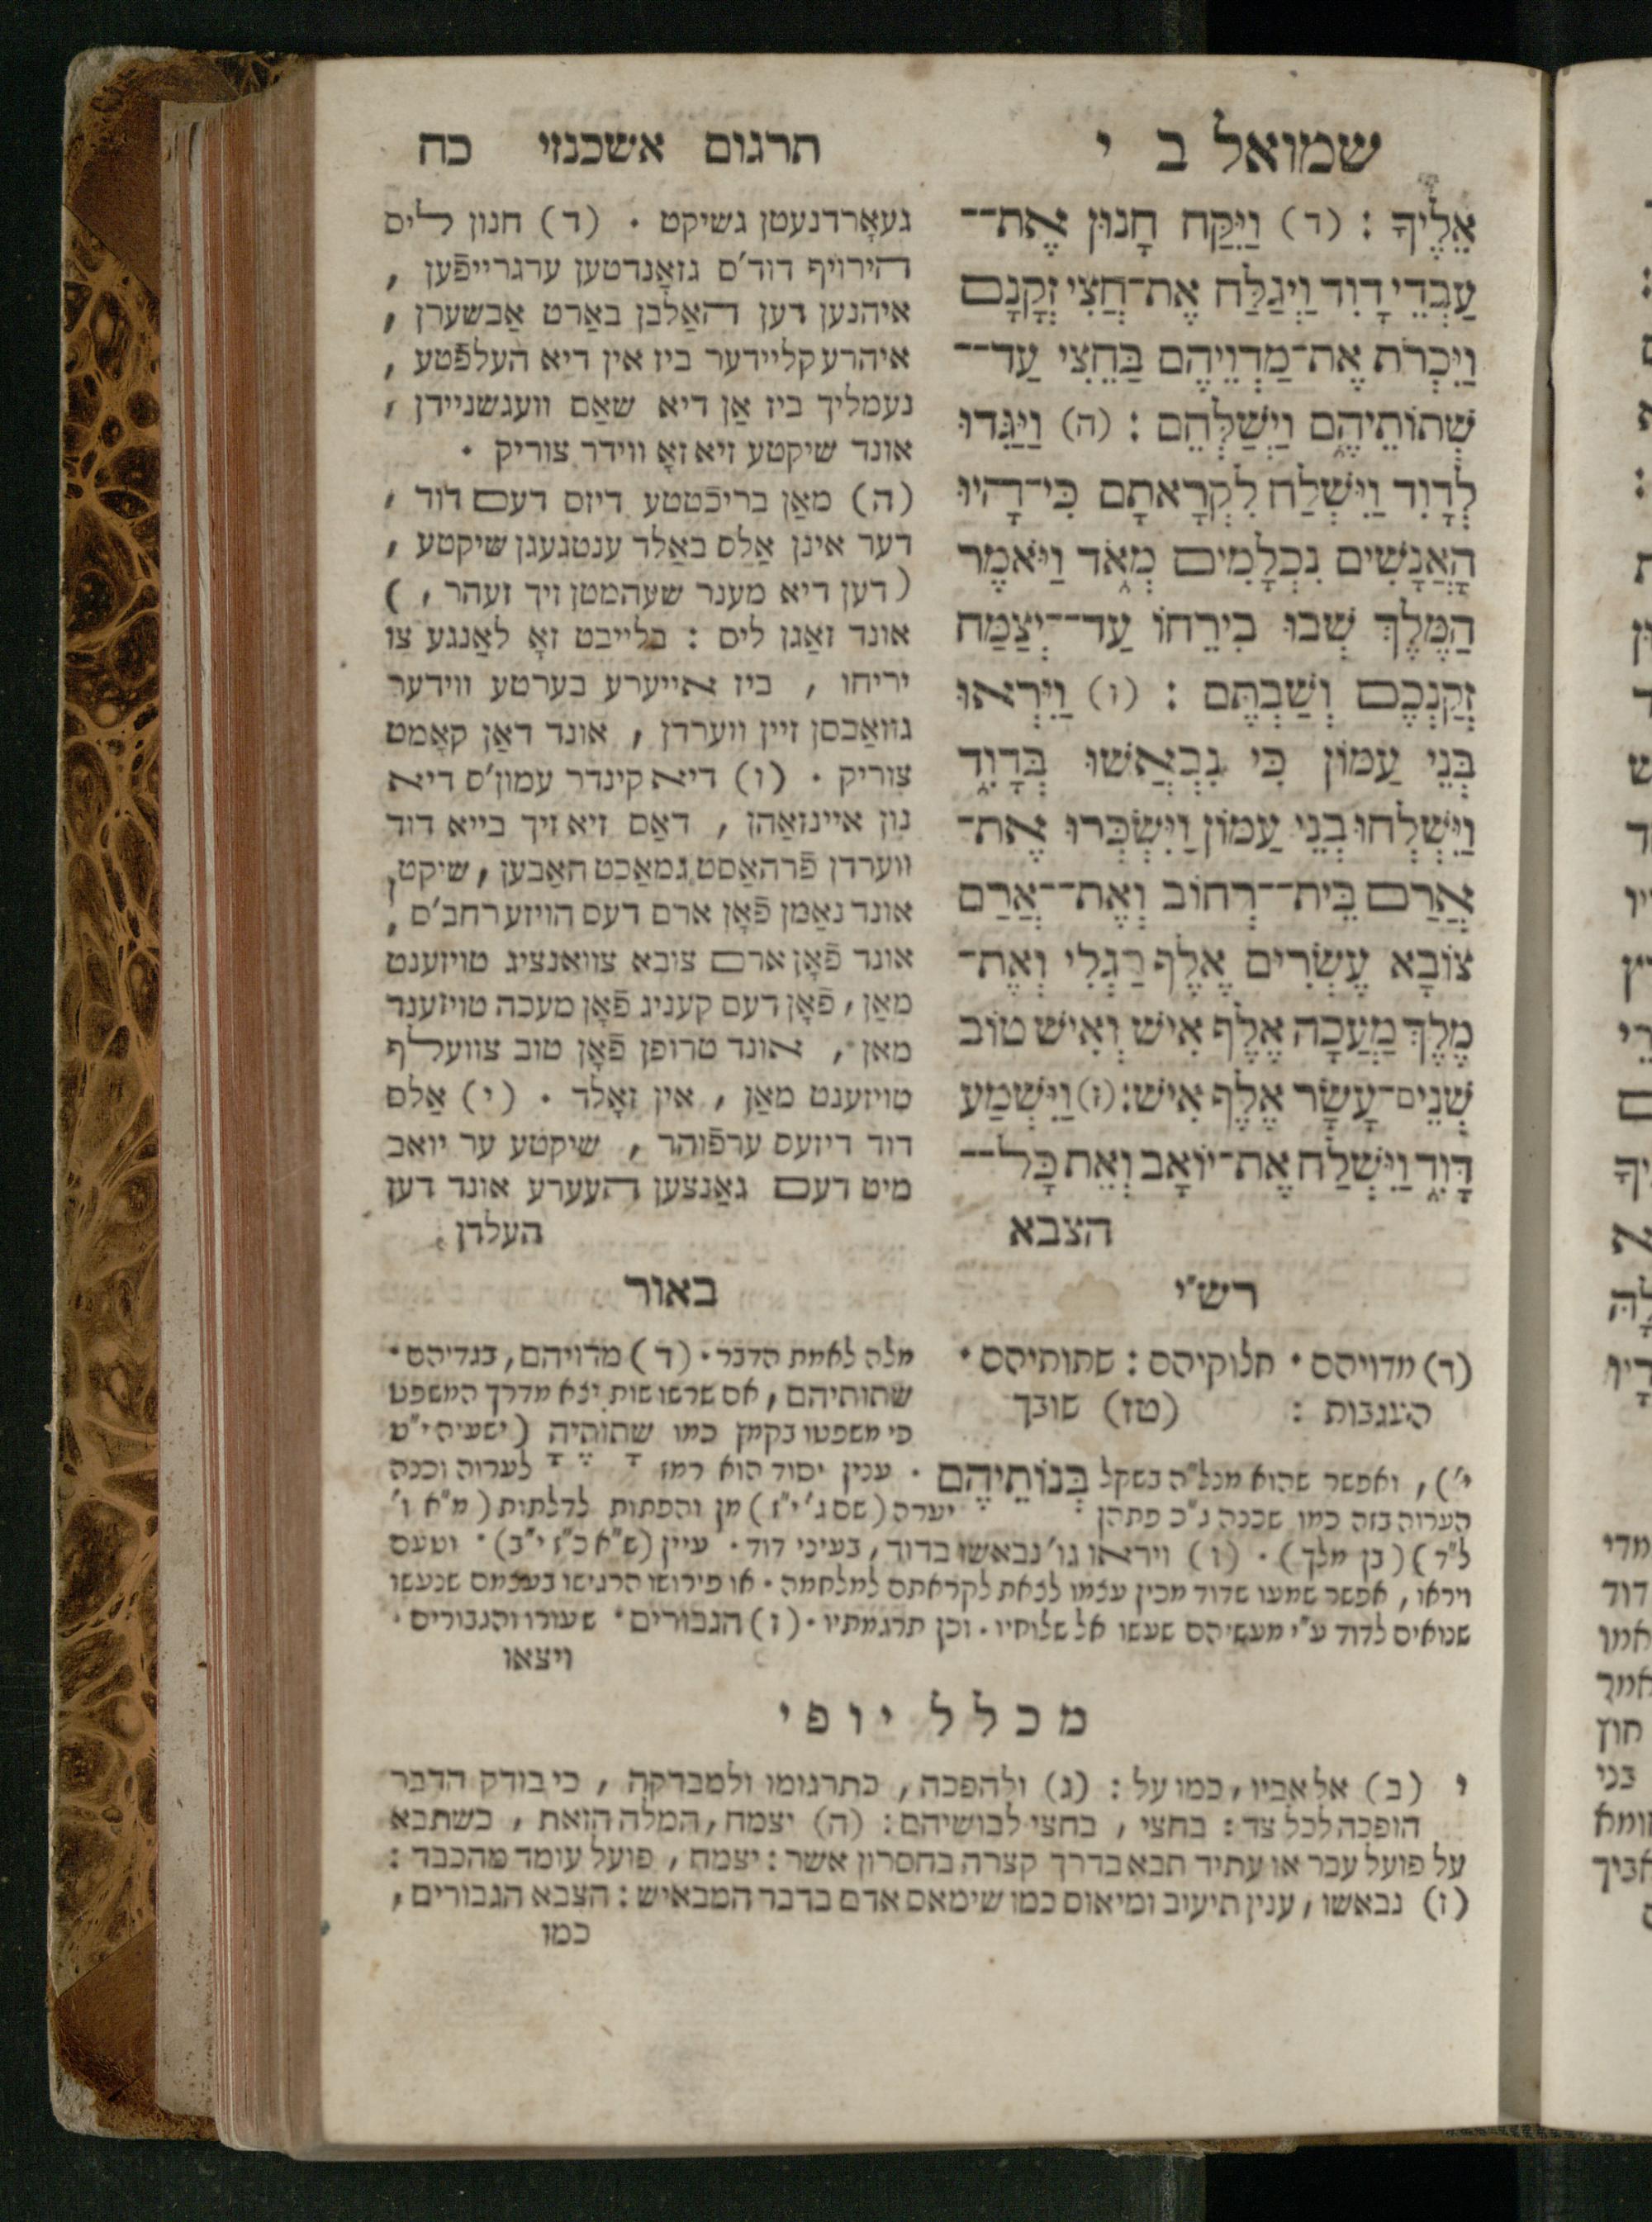 שמואל ב י
אֵלֶיךָ : (ד) וַיִּקַּח חָנוּן אֶת־־
עַבְדֵי דָוִד וַיְגַלַּח אֶת־חֲצִי זְקָנָם
וַיִּכְרֹת אֶת־מַדְוֵיהֶם בַּחֵצִי עַד־־
שְׁתוֹתֵיהֶם וַיְשַׁלְּחֵם : (ה) וַיַּגִּדוּ
לְדָוִד וַיִּשְׁלַח לִקְרָאתָם כִּי־הָיוּ
הָאֲנָשִׁים נִכְלָמִים מְאֹד וַיֹּאמֶר
הַמֶּלֶךְ שְׁבוּ בִירֵחוֹ עַד־־יְצַמַּח
זְקַנְכֶם וְשַׁבְתֶּם : (ו) וַיִּרְאוּ
בְּנֵי עַמּוֹן כִּי נִבְאֲשׁוּ בְּדָוִד
וַיִּשְׁלְחוּ בְנֵי עַמּוֹן וַיִּשְׂכְּרוּ אֶת־
אֲרַם בֵּית־־רְחוֹב וְאֶת־־אֲרַם
צוֹבָא עֶשְׂרִים אֶלֶף רַגְלִי וְאֶת־
מֶלֶךְ מַעֲכָה אֶלֶף אִישׁ וְאִישׁ טוֹב
שְׁנֵים־עָשָׂר אֶלֶף אִישׁ: (ז) וַיִּשְׁמַע
דָּוִד וַיִּשְׁלַח אֶת־יוֹאָב וְאֵת כָּל־־
הצבא
תרגום אשכנזי כח
געאָרדנעטן גשיקט . (ד) חנון ליס
הירויף דוד'ס גזאַנדטען ערגרייפֿען ,
איהנען דען האַלבן באַרט אַבשערן ,
איהרע קליידער ביז אין דיא העלפֿטע ,
נעמליך ביז אַן דיא שאַם וועגשניידן ,
אונד שיקטע זיא זאָ ווידר צוריק .
(ה) מאַן בריכֿטטע דיזס דעם דוד ,
דער אינן אַלס באַלד ענטגעגן שיקטע ,
(דען דיא מענר שעהמטן זיך זעהר , )
אונד זאַגן ליס : בלייבט זאָ לאַנגע צו
יריחו , ביז אייערע בערטע ווידער
גוואַכסן זיין ווערדן , אונד דאַן קאָמט
צוריק . (ו) דיא קינדר עמון'ס דיא
נון איינזאַהן , דאַס זיא זיך בייא דוד
ווערדן פֿרהאַסט גמאַכט האַבען , שיקטן
אונד נאַמן פֿאָן ארם דעס הויזע רחב'ס ,
אונד פֿאָן ארם צובא צוואנציג טויזענט
מאַן , פֿאָן דעם קעניג פֿאָן מעכה טויזענד
מאן , אונד טרופן פֿאָן טוב צוועלף
טויזענט מאַן , אין זאָלד . (י) אַלס
דוד דיזעס ערפֿוהר , שיקטע ער יואב
מיט דעם גאַנצען העערע אונד דען
העלדן .
רש"י
(ד) מדויהם . חלוקיהם : שתותיהם .
העגבות : (טז) שובך
באור
מלה לאמת הדבר . (ד) מדויהם , בגדיהם .
שתותיהם , אם שרשו שות יצא מדרך המשפט
כי משפטו בקמץ כמו שָׁתוֹתֶיהָ (ישעיה י"ט
י') , ואפשר שהוא מנל"ה בשקל בְּנוֹתֵיהֶם . ענין יסוד הוא רמז לערוה וכנה
הערוה בזה כמו שכנה ג"כ פתהן יערה (שם ג' י"ז) מן והפתות לדלתות (מ"א ו'
ל"ד) (בן מלך) . (ו) ויראו גו' נבאשו בדוד , בעיני דוד . עיין (ש"א כ"ז י"ב) . וטעם
ויראו , אפשר שמעו שדוד מכין עצמו לצאת לקראתם למלחמה . או פירושו הרגישו בעצמם שנעשו
שנואים לדוד ע"י מעשיהם שעשו אל שלוחיו . וכן תרגמתיו . (ז) הגבורים . שעורו והגבורים .
ויצאו
מכלל יופי
י (ב) אל אביו , כמו על : (ג) ולהפכה , כתרגומו ולמבדקה , כי בודק הדבר
הופכה לכל צד : בחצי , בחצי לבושיהם : (ה) יצמח , המלה הזאת , כשתבא
על פועל עבר או עתיד תבא בדרך קצרה בחסרון אשר : יצמח , פועל עומד מהכבד :
(ז) נבאשו , ענין תיעוב ומיאוס כמו שימאס אדם בדבר המבאיש : הצבא הגבורים ,
כמו